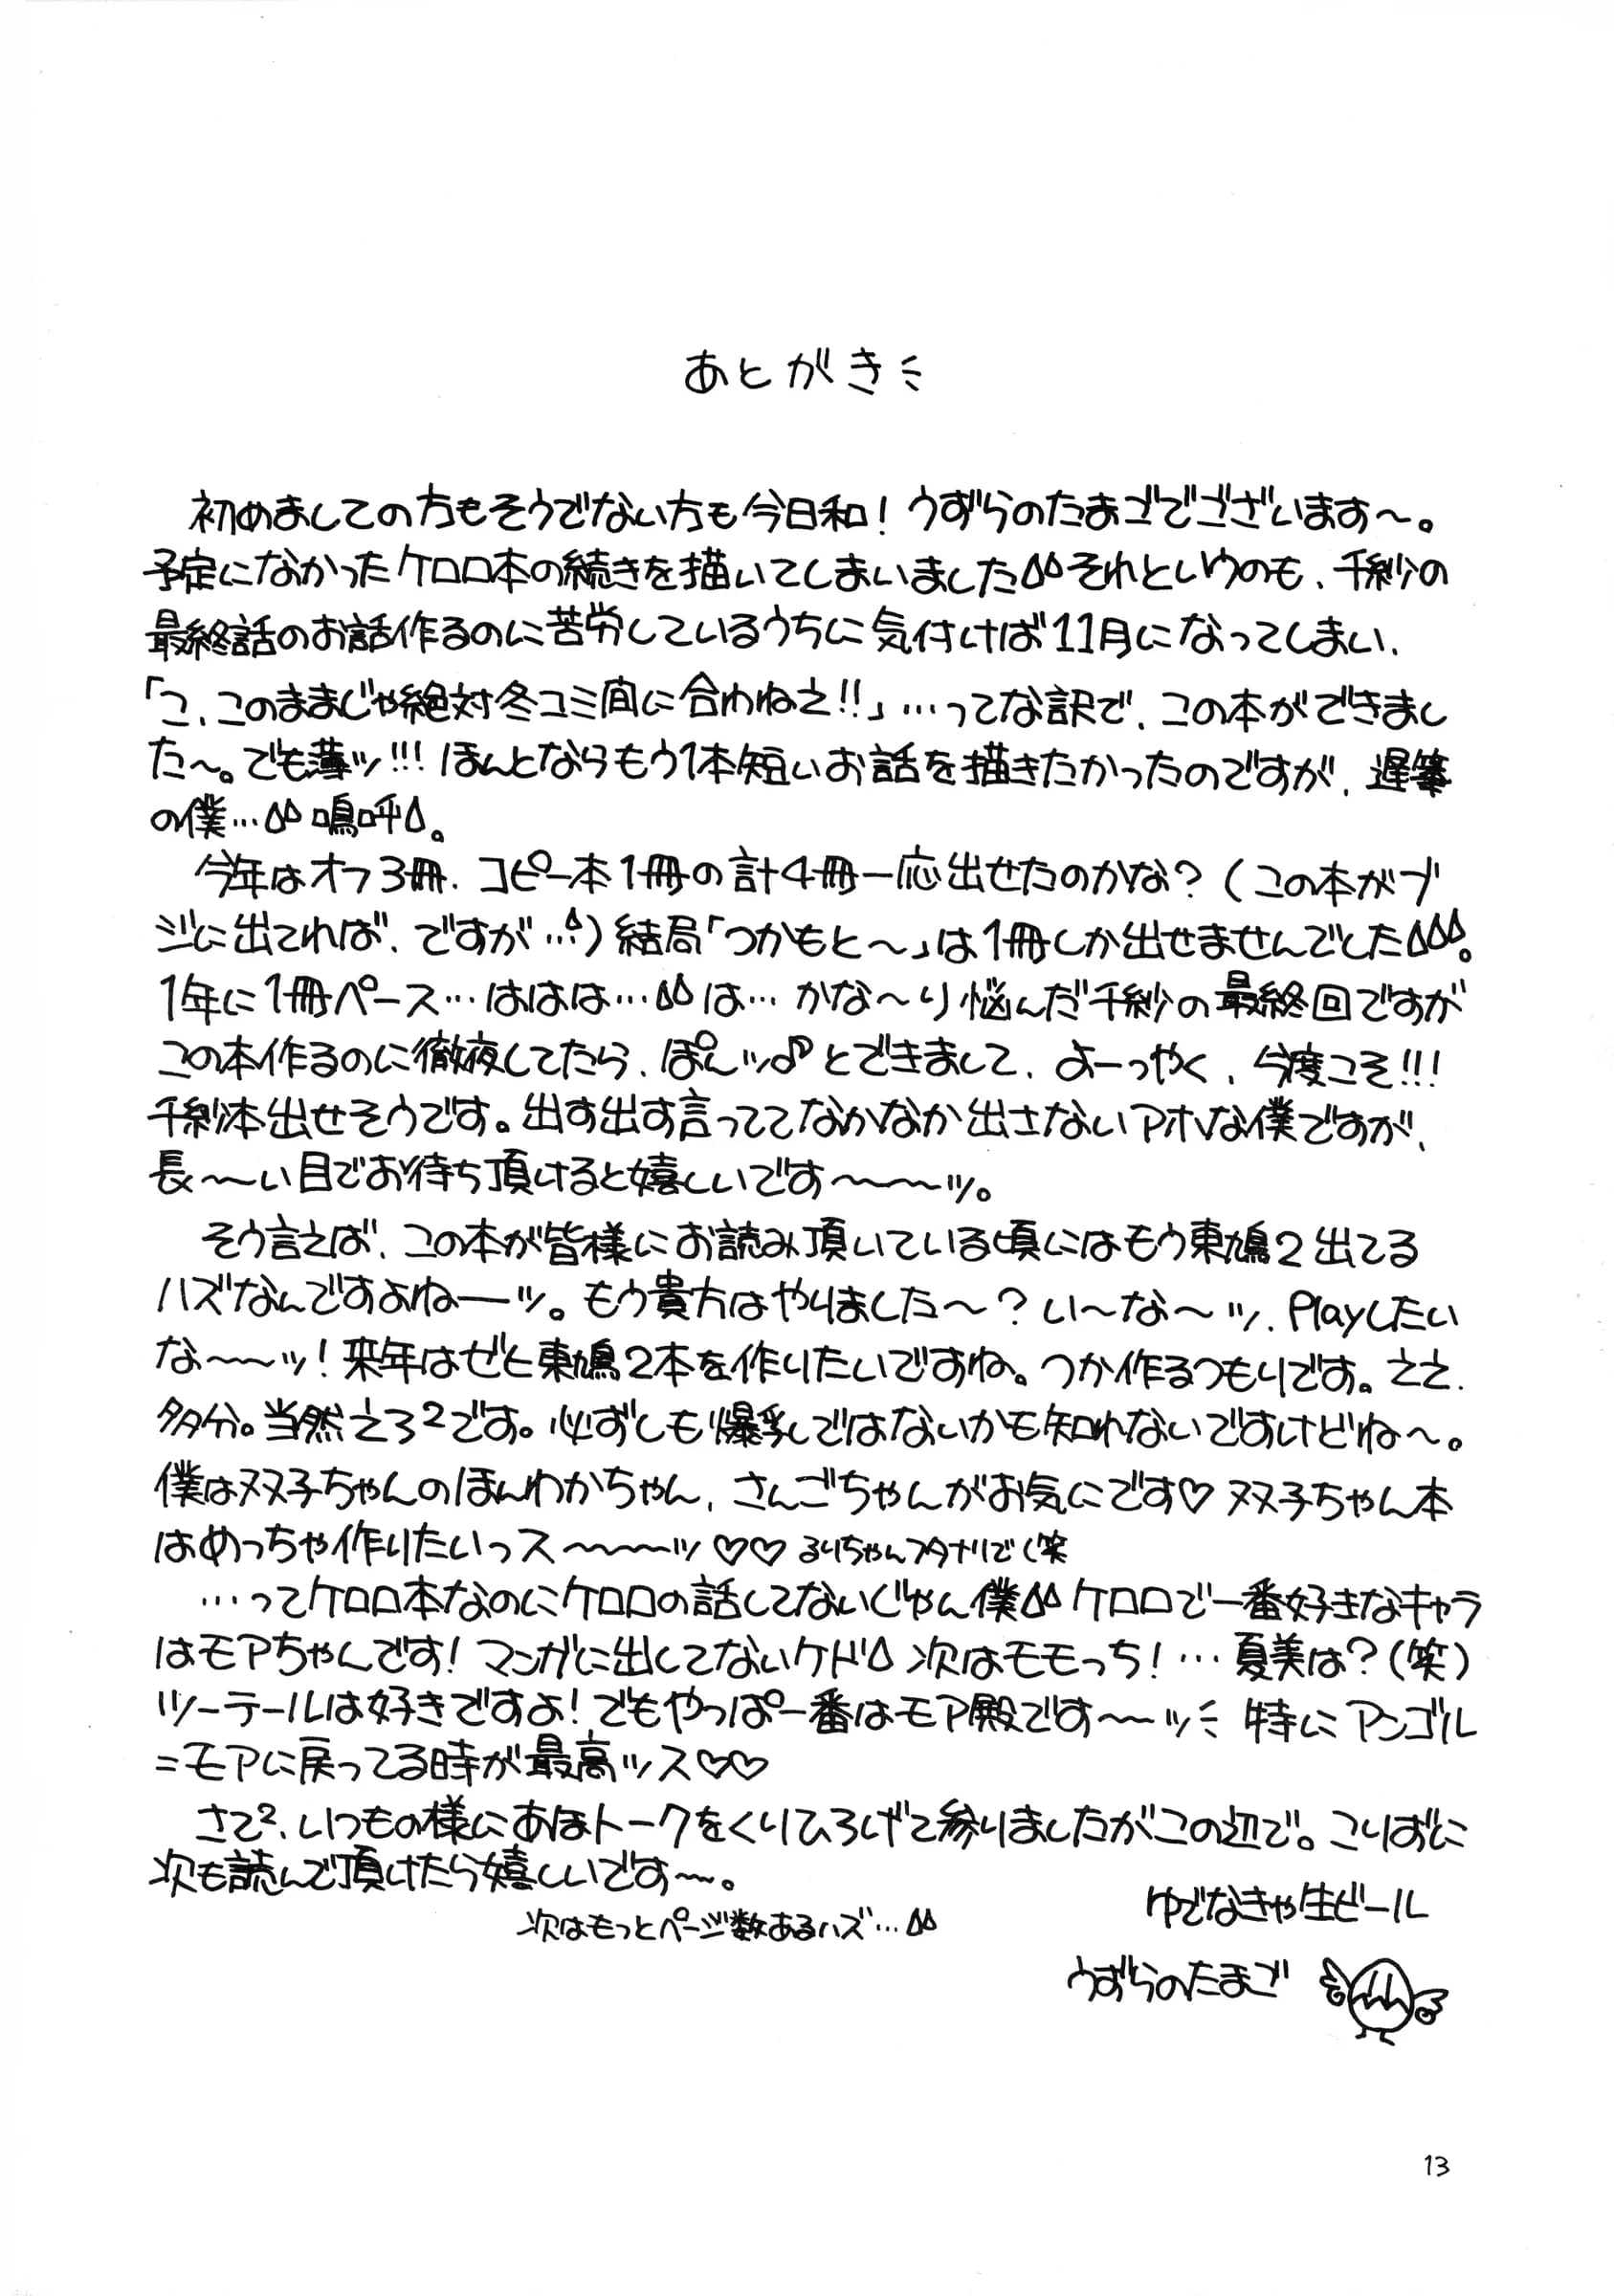 あとがき
初めましての方もそうでない方も今日和！うずらのたまごでございます〜。
予定になかったケロロ本の続きを描いてしまいましたそれというのも、千紗の
最終話のお話作るのに苦労しているうちに気付けば11月になってしまい、
「こ、このままじゃ絶対冬コミ間に合わねえ!!」…ってな訳で、この本ができまし
た〜。でも薄ッ!!!ほんとならもう1本短いお話を描きたかったのですが、遅筆
の僕…嗚呼。
今年はオフ3冊、コピー本1冊の計4冊一応出せたのかな？（この本がブ
ジに出てれば、ですが…）結局「つかもと〜」は1冊しか出せませんでした。
1年に1冊ペース…ははは…は…かな〜り悩んだ千紗の最終回ですが
この本作るのに徹夜してたら、ぽんッ♪とできまして、よーっやく、今度こそ!!!
千紗本出せそうです。出す出す言っててなかなか出さないアホな僕ですが、
長〜〜い目でお待ち頂けると嬉しいです〜〜〜ッ。
そう言えば、この本が皆様にお読み頂いている頃にはもう東鳩2出てる
ハズなんですよねーーッ。もう貴方はやりました〜？い〜な〜ッ、Playしたい
な〜〜ッ！来年はぜひ東鳩2本を作りたいですね。つか作るつもりです。ええ、
多分。当然えろ²です。必ずしも爆乳ではないかも知れないですけどね〜。
僕は双子ちゃんのほんわかちゃん、さんごちゃんがお気にです♡双子ちゃん本
はめっちゃ作りたいっス〜〜〜ッ♡♡るりちゃんフタナリで（笑
…ってケロロ本なのにケロロの話してないじゃん僕ケロロで一番好きなキャラ
はモアちゃんです！マンガに出してないケド次はモモっち！…夏美は？（笑）
ツーテールは好きですよ！でもやっぱ一番はモア殿です〜〜ッ特にアンゴル
＝モアに戻ってる時が最高ッス♡♡
さて²、いつもの様にあほトークをくりひろげて参りましたがこの辺で。こりずに
次も読んで頂けたら嬉しいです〜。
次はもっとページ数あるハズ…
ゆでなきゃ生ビール
うずらのたまご
13